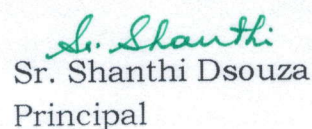 Sr. Shanthi
Sr. Shanthi Dsouza
Principal